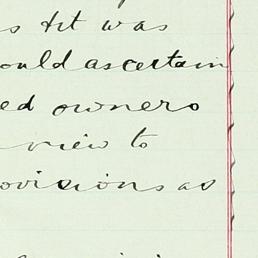 s Act was
ould ascertain
ed owners
view to
ovisions as